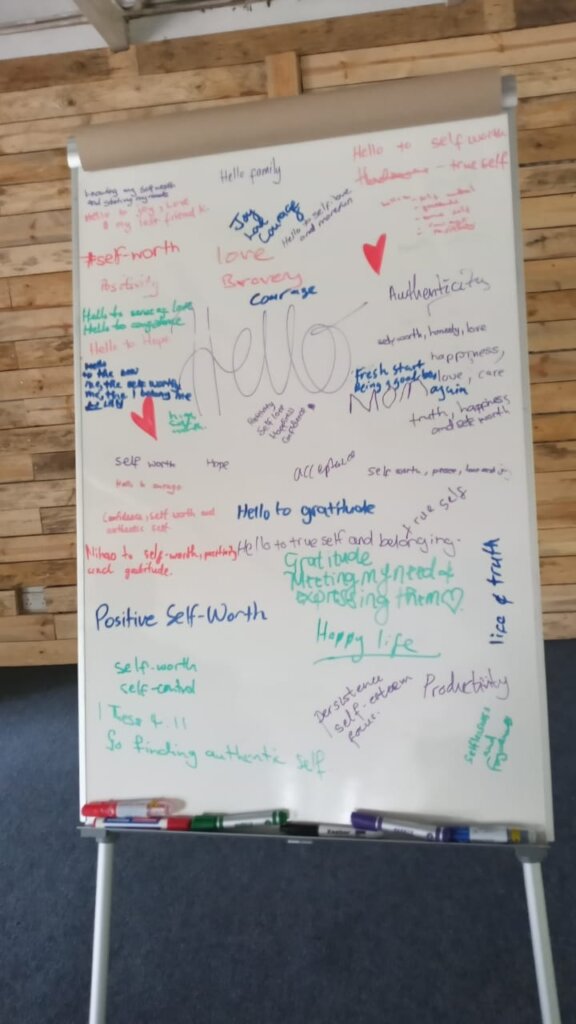 Hello family
Hello to self worth
- true self
knowing my self worth
and starting my needs
Hello to Joy, Love
& my lost friend K.
Joy
Love
Courage
Hello to self love
#self-worth
love
Positivity
Bravery
Courage
Authenticity
Hello to
Hello to confidence
Hello to Hope
Hello
self worth, honesty, love
happiness,
love, care
Hello
to the new
me, the self worthy
me, the I belong me
Fresh start
being a good boy
again
Mom
truth, happiness
and self worth
Positivity
Self love
Happiness
Confidence
self worth
Hope
acceptance
self worth, peace, love and joy
Hello to courage
Confidence, self worth and
authentic self
Hello to gratitude
true self
Nihao to self-worth, positivity
and gratitude.
Hello to true self and belonging.
Gratitude
Meeting my need &
expressing them
life & truth
Positive Self-Worth
Happy life
self-worth
self-control
Persistence
self-esteem
focus.
Productivity
So finding authentic self
and